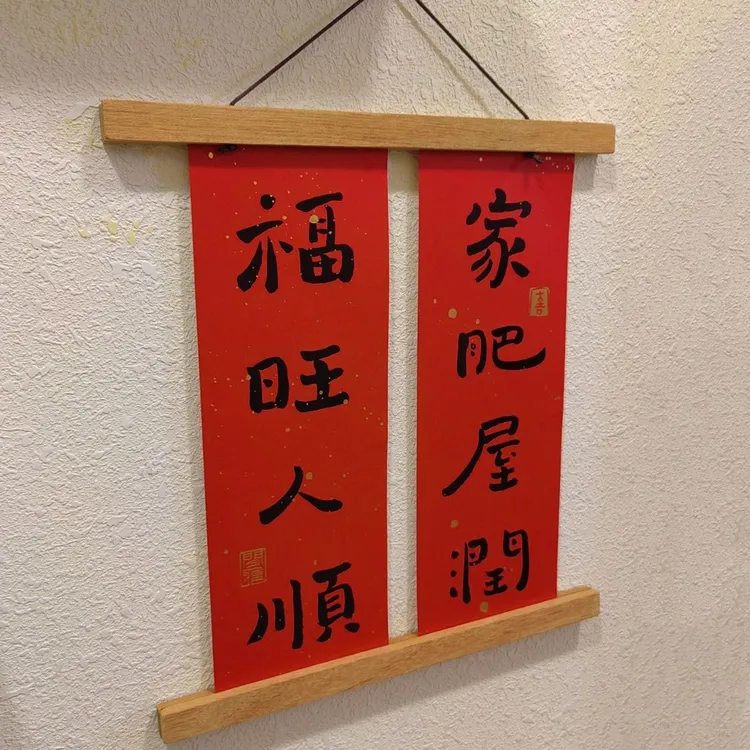 家肥屋潤
福旺人順